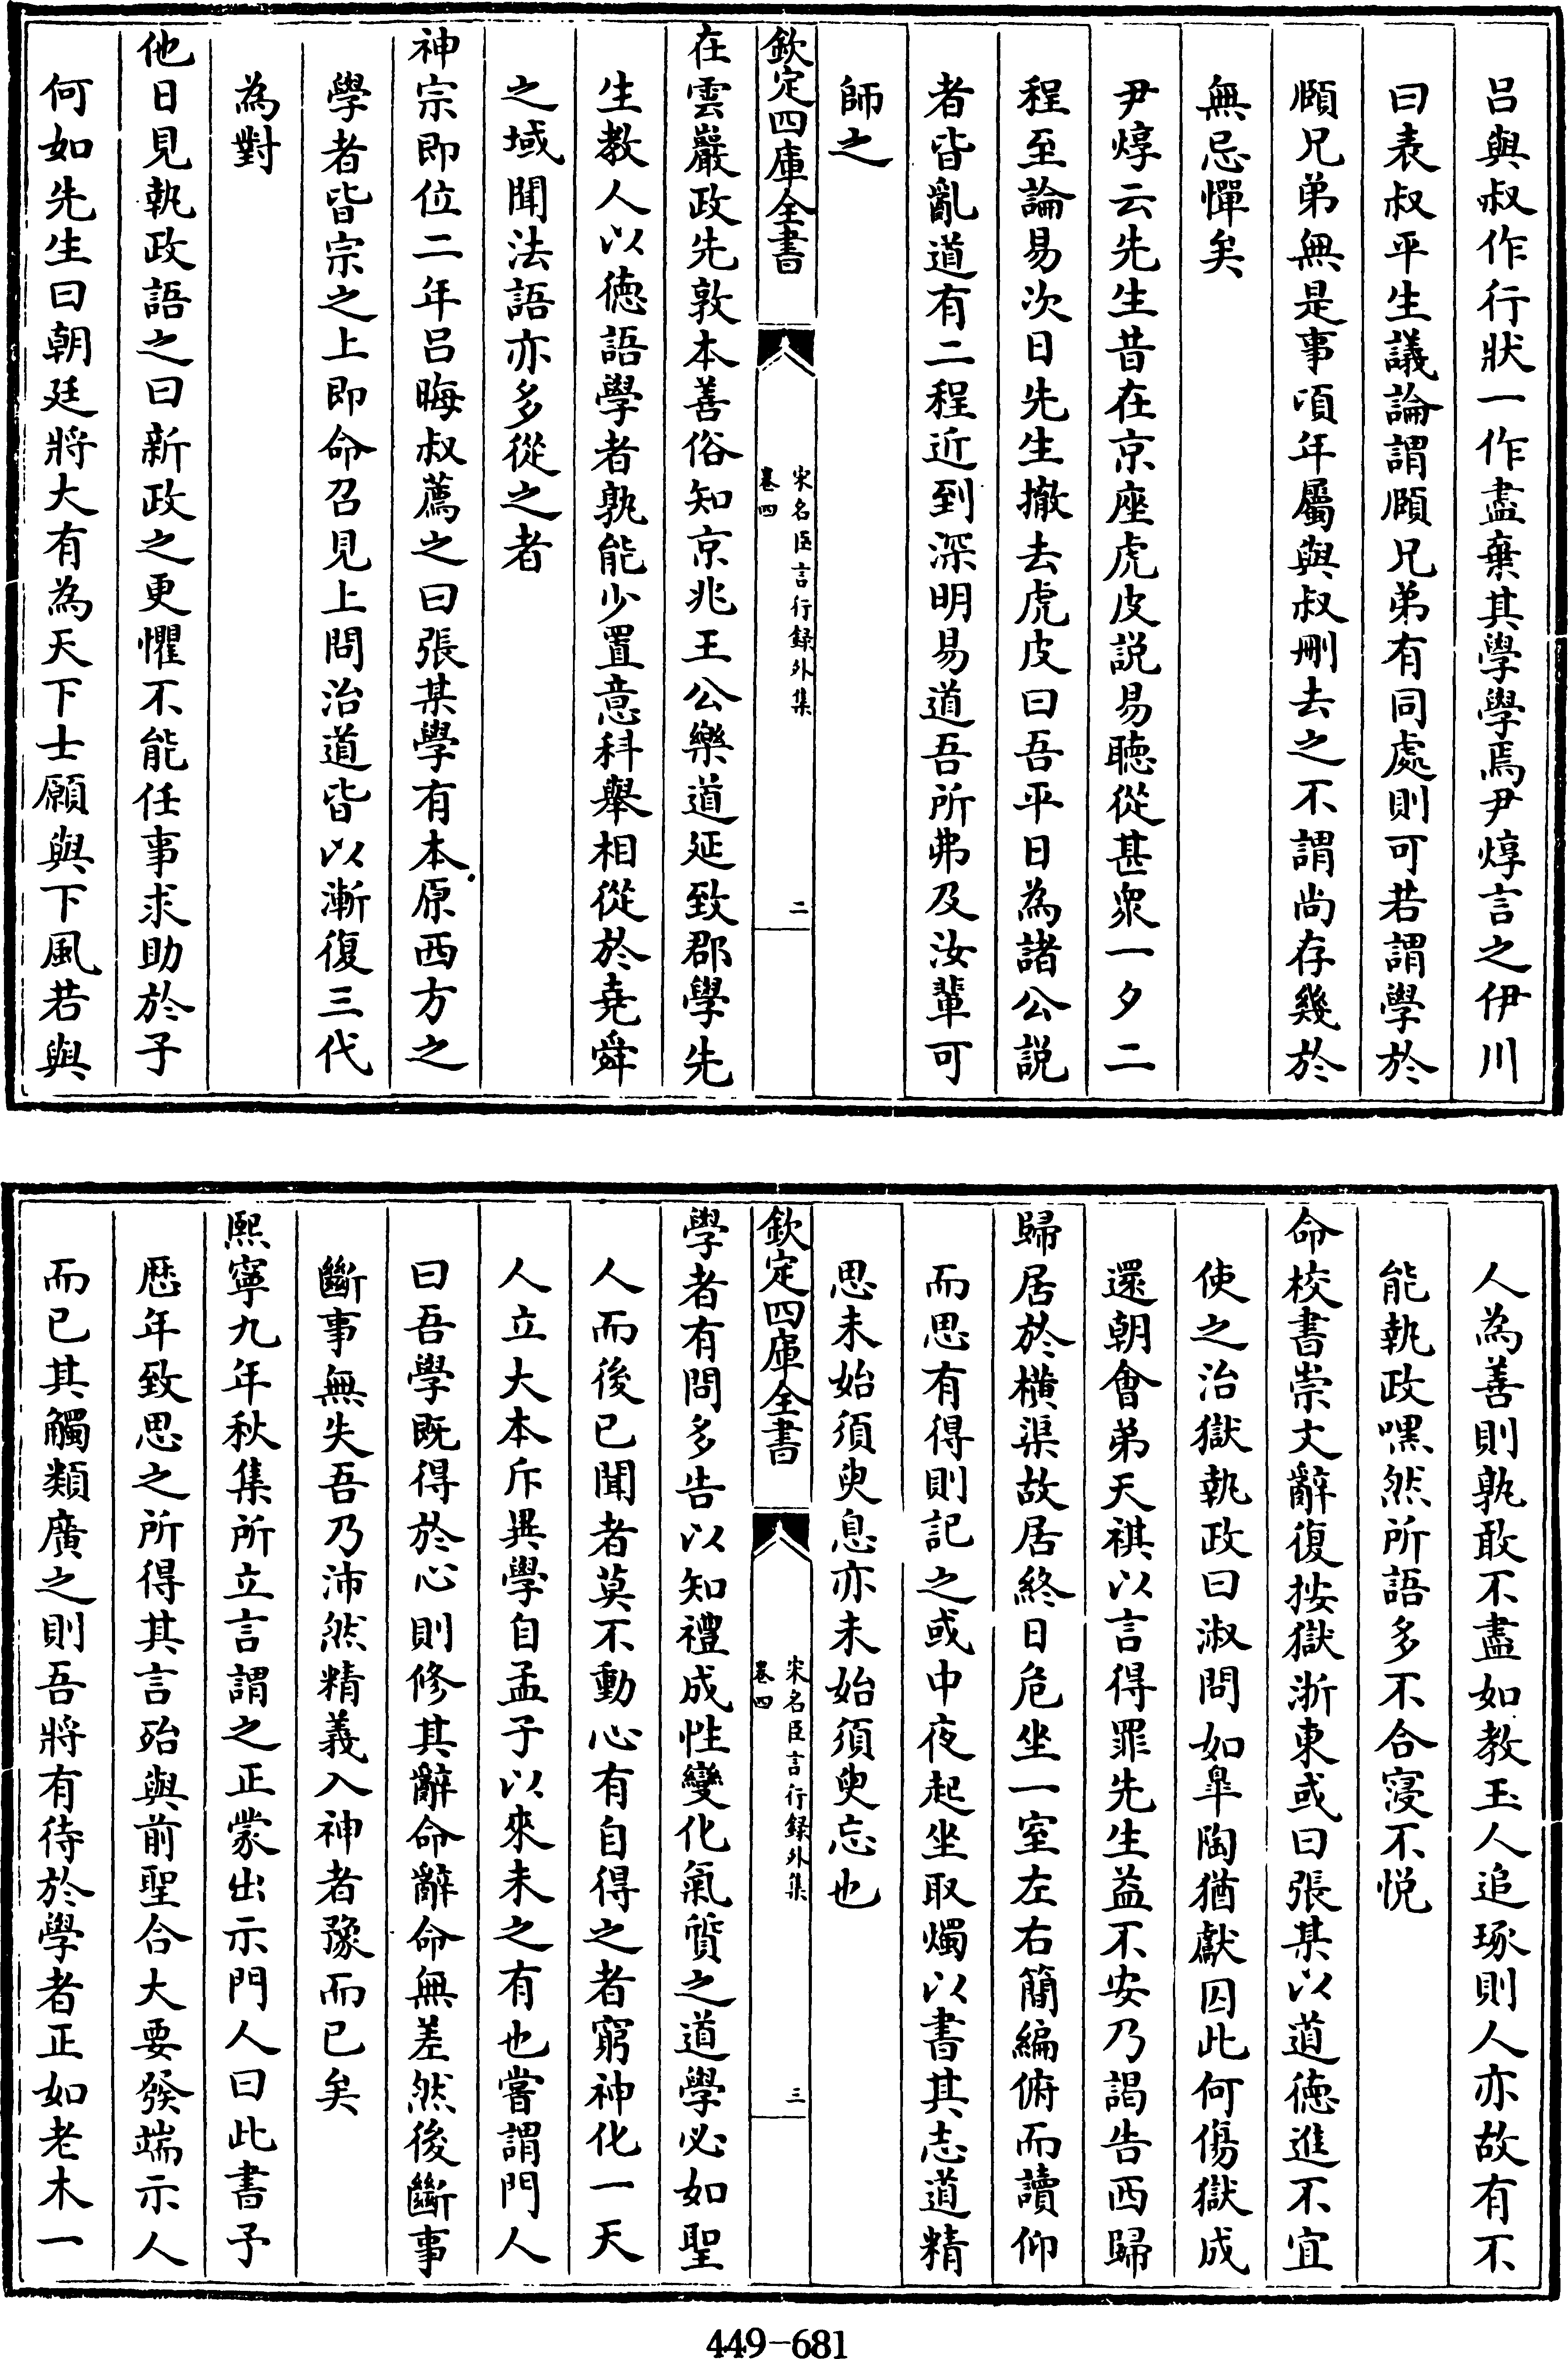 呂與叔作行狀一作盡棄其學學焉尹焞言之伊川
曰表叔平生議論謂頤兄弟有同處則可若謂學於
頤兄弟無是事頃年屬與叔刪去之不謂尚存幾於
無忌憚矣
尹焞云先生昔在京座虎皮説易聽從甚衆一夕二
程至論易次日先生撤去虎皮曰吾平日為諸公説
者皆亂道有二程近到深明易道吾所弗及汝輩可
師之
欽定四庫全書
宋名臣言行録外集
卷四
二
在雲巖政先敦本善俗知京兆王公樂道延致郡學先
生教人以徳語學者孰能少置意科舉相從於堯舜
之域聞法語亦多從之者
神宗即位二年呂晦叔薦之曰張某學有本原西方之
學者皆宗之上即命召見上問治道皆以漸復三代
為對
他日見執政語之曰新政之更懼不能任事求助於子
何如先生曰朝廷將大有為天下士願與下風若與
人為善則孰敢不盡如教玉人追琢則人亦故有不
能執政嘿然所語多不合寖不悦
命校書崇文辭復按獄浙東或曰張某以道徳進不宜
使之治獄執政曰淑問如臯陶猶獻囚此何傷獄成
還朝會弟天祺以言得罪先生益不安乃謁告西歸
歸居於橫渠故居終日危坐一室左右簡編俯而讀仰
而思有得則記之或中夜起坐取燭以書其志道精
思未始須臾息亦未始須臾忘也
欽定四庫全書
宋名臣言行録外集
卷四
三
學者有問多告以知禮成性變化氣質之道學必如聖
人而後已聞者莫不動心有自得之者窮神化一天
人立大本斥異學自孟子以來未之有也嘗謂門人
曰吾學既得於心則修其辭命辭命無差然後斷事
斷事無失吾乃沛然精義入神者豫而已矣
熙寧九年秋集所立言謂之正蒙出示門人曰此書予
歴年致思之所得其言殆與前聖合大要發端示人
而已其觸類廣之則吾將有待於學者正如老木一
449-681